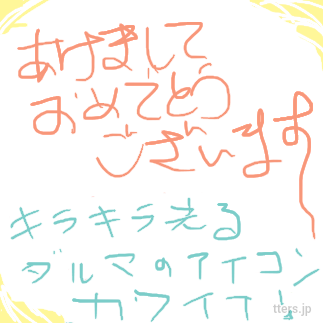 あけまして
おめでとう
ございます
キラキラ光る
ダルマのアイコン
カワイイ!
tters.jp